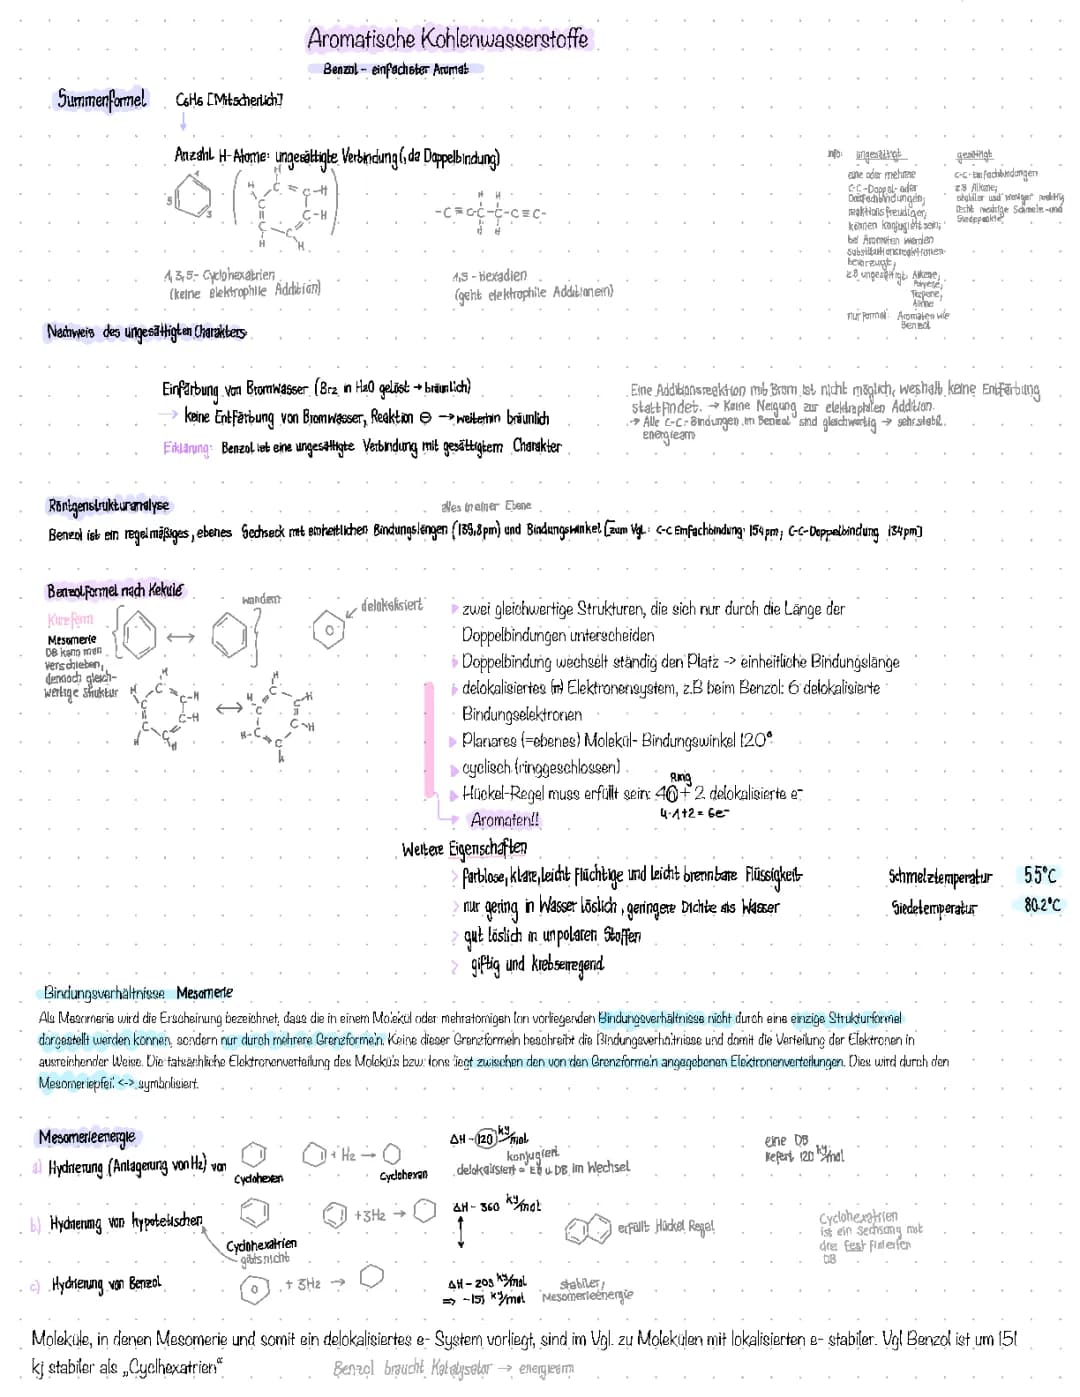 Aromatische Kohlenwasserstoffe
Benzol - einfachster Aromat
Summenformel C6H6 [Mitscherlich]
Anzahl H-Atome: ungesättigte Verbindung (, da Doppelbindung)
1,3,5- Cyclohexatrien
(keine elektrophile Addition)
1,5 - Hexadien
(geht elektrophile Additionein)
Info: ungesättigt
eine oder mehrere
C-C-Doppel- oder
Dreifachbindungen;
reaktionsfreudiger,
können konjugiert sein;
bei Aromaten werden
Substitutionsreaktionen
bevorzugt;
z.B ungesättigt: Alkene,
Polyene,
Terpene,
Alkine
nur formal: Aromaten wie
Benzol
gesättigt
C-C- Einfachbindungen
z.B Alkane;
stabiler und weniger reaktiv
Recht niedrige Schmelz-und
Siedepunkte
Nachweis des ungesättigten Charakters
Einfärbung von Bromwasser (Br2 in H2O gelöst → bräunlich)
→ keine Entfärbung von Bromwasser, Reaktion ⊖ → weiterhin bräunlich
Erklärung: Benzol ist eine ungesättigte Verbindung mit gesättigtem Charakter
Eine Additionsreaktion mit Brom ist nicht möglich, weshalb keine Entfärbung
stattfindet. → Keine Neigung zur elektrophilen Addition
→ Alle C-C-Bindungen im Benzol sind gleichwertig → sehr stabil
energiearm
Röntgenstrukturanalyse
alles in einer Ebene
Benzol ist ein regelmäßiges, ebenes Sechseck mit einheitlichen Bindungslängen (139,8pm) und Bindungswinkel [zum Vgl.: C-C Einfachbindung: 154pm; C-C-Doppelbindung 134pm]
Benzolformel nach Kekulé
Kurzform
Mesomerie
DB kann man
verschieben,
dennoch gleich-
wertige Struktur
wandern
delokalisiert
zwei gleichwertige Strukturen, die sich nur durch die Länge der
Doppelbindungen unterscheiden
Doppelbindung wechselt ständig den Platz -> einheitliche Bindungslänge
delokalisiertes (π) Elektronensystem, z.B beim Benzol: 6 delokalisierte
Bindungselektronen
Planares (=ebenes) Molekül- Bindungswinkel 120°
cyclisch (ringgeschlossen)
Ring
Hückel-Regel muss erfüllt sein: 4n+2 delokalisierte e-
4·1+2=6e-
Aromaten!!
Weitere Eigenschaften
> farblose, klare, leicht flüchtige und leicht brennbare Flüssigkeit
> nur gering in Wasser löslich, geringere Dichte als Wasser
> gut löslich in unpolaren Stoffen
> giftig und krebserregend
Schmelztemperatur 5.5°C
Siedetemperatur 80.2°C
Bindungsverhältnisse Mesomerie
Als Mesomerie wird die Erscheinung bezeichnet, dass die in einem Molekül oder mehratomigen Ion vorliegenden Bindungsverhältnisse nicht durch eine einzige Strukturformel
dargestellt werden können, sondern nur durch mehrere Grenzformeln. Keine dieser Grenzformeln beschreibt die Bindungsverhältnisse und damit die Verteilung der Elektronen in
ausreichender Weise. Die tatsächliche Elektronenverteilung des Moleküls bzw. Ions liegt zwischen den von den Grenzformeln angegebenen Elektronenverteilungen. Dies wird durch den
Mesomeriepfeil <-> symbolisiert.
Mesomerieenergie
a) Hydrierung (Anlagerung von H2) von
Cyclohexen
+ H2 →
Cyclohexan
ΔH -120 kJ/mol
konjugiert
delokalisiert = EB u. DB im Wechsel
eine DB
liefert 120 kJ/mol
b) Hydrierung von hypotetischen
Cyclohexatrien
gibts nicht
+3H2 →
ΔH - 360 kJ/mol
erfüllt Hückel Regel
Cyclohexatrien
ist ein Sechsring mit
drei fest fixierten
DB
c) Hydrierung von Benzol
+ 3H2 →
ΔH - 209 kJ/mol
⇒ -151 kJ/mol
stabiler,
Mesomerieenergie
Moleküle, in denen Mesomerie und somit ein delokalisiertes e- System vorliegt, sind im Vgl. zu Molekülen mit lokalisierten e- stabiler. Vgl Benzol ist um 151
kj stabiler als „Cyclhexatrien“
Benzol braucht Katalysator → energiearm